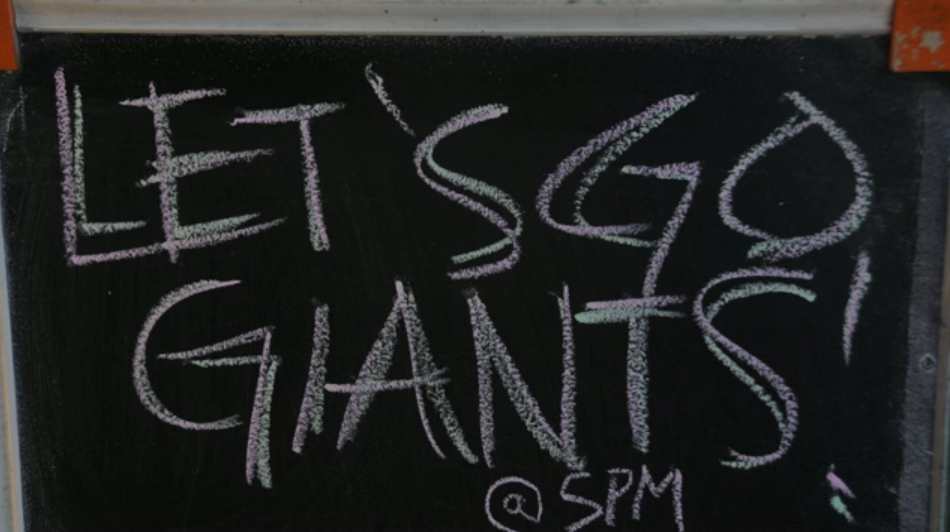 LET'S GO
GIANTS!
@ 5PM